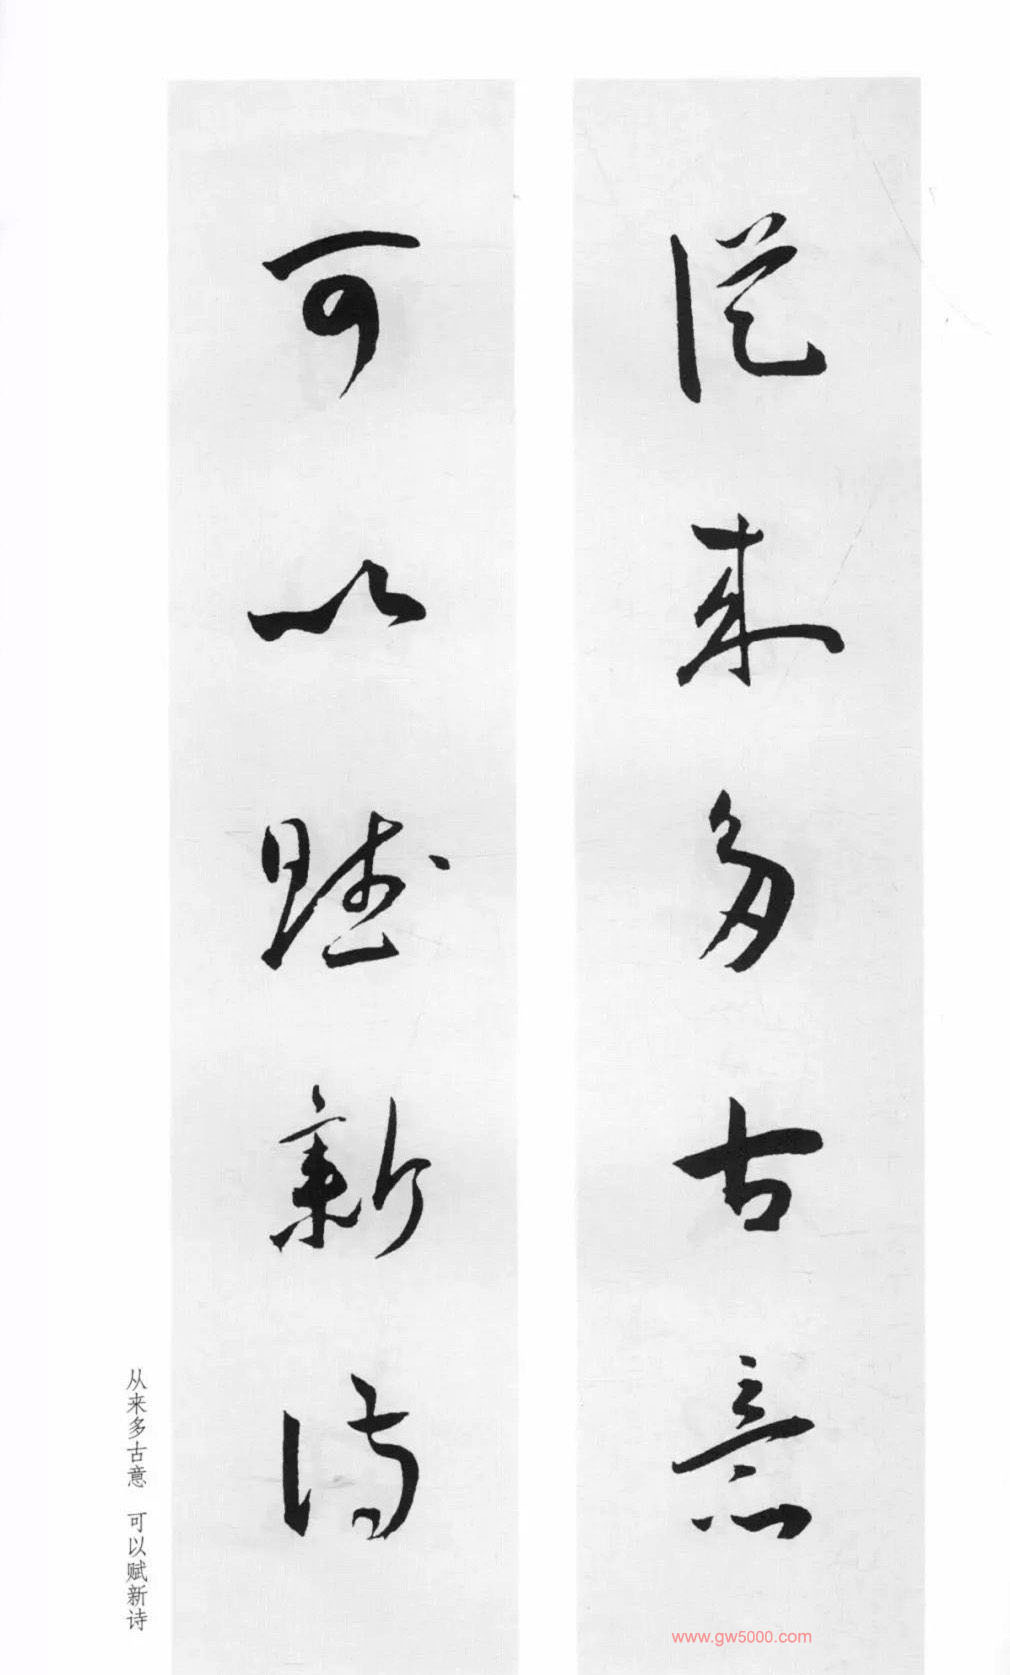 從来多古意
可以賦新詩
从来多古意 可以赋新诗
www.gw5000.com